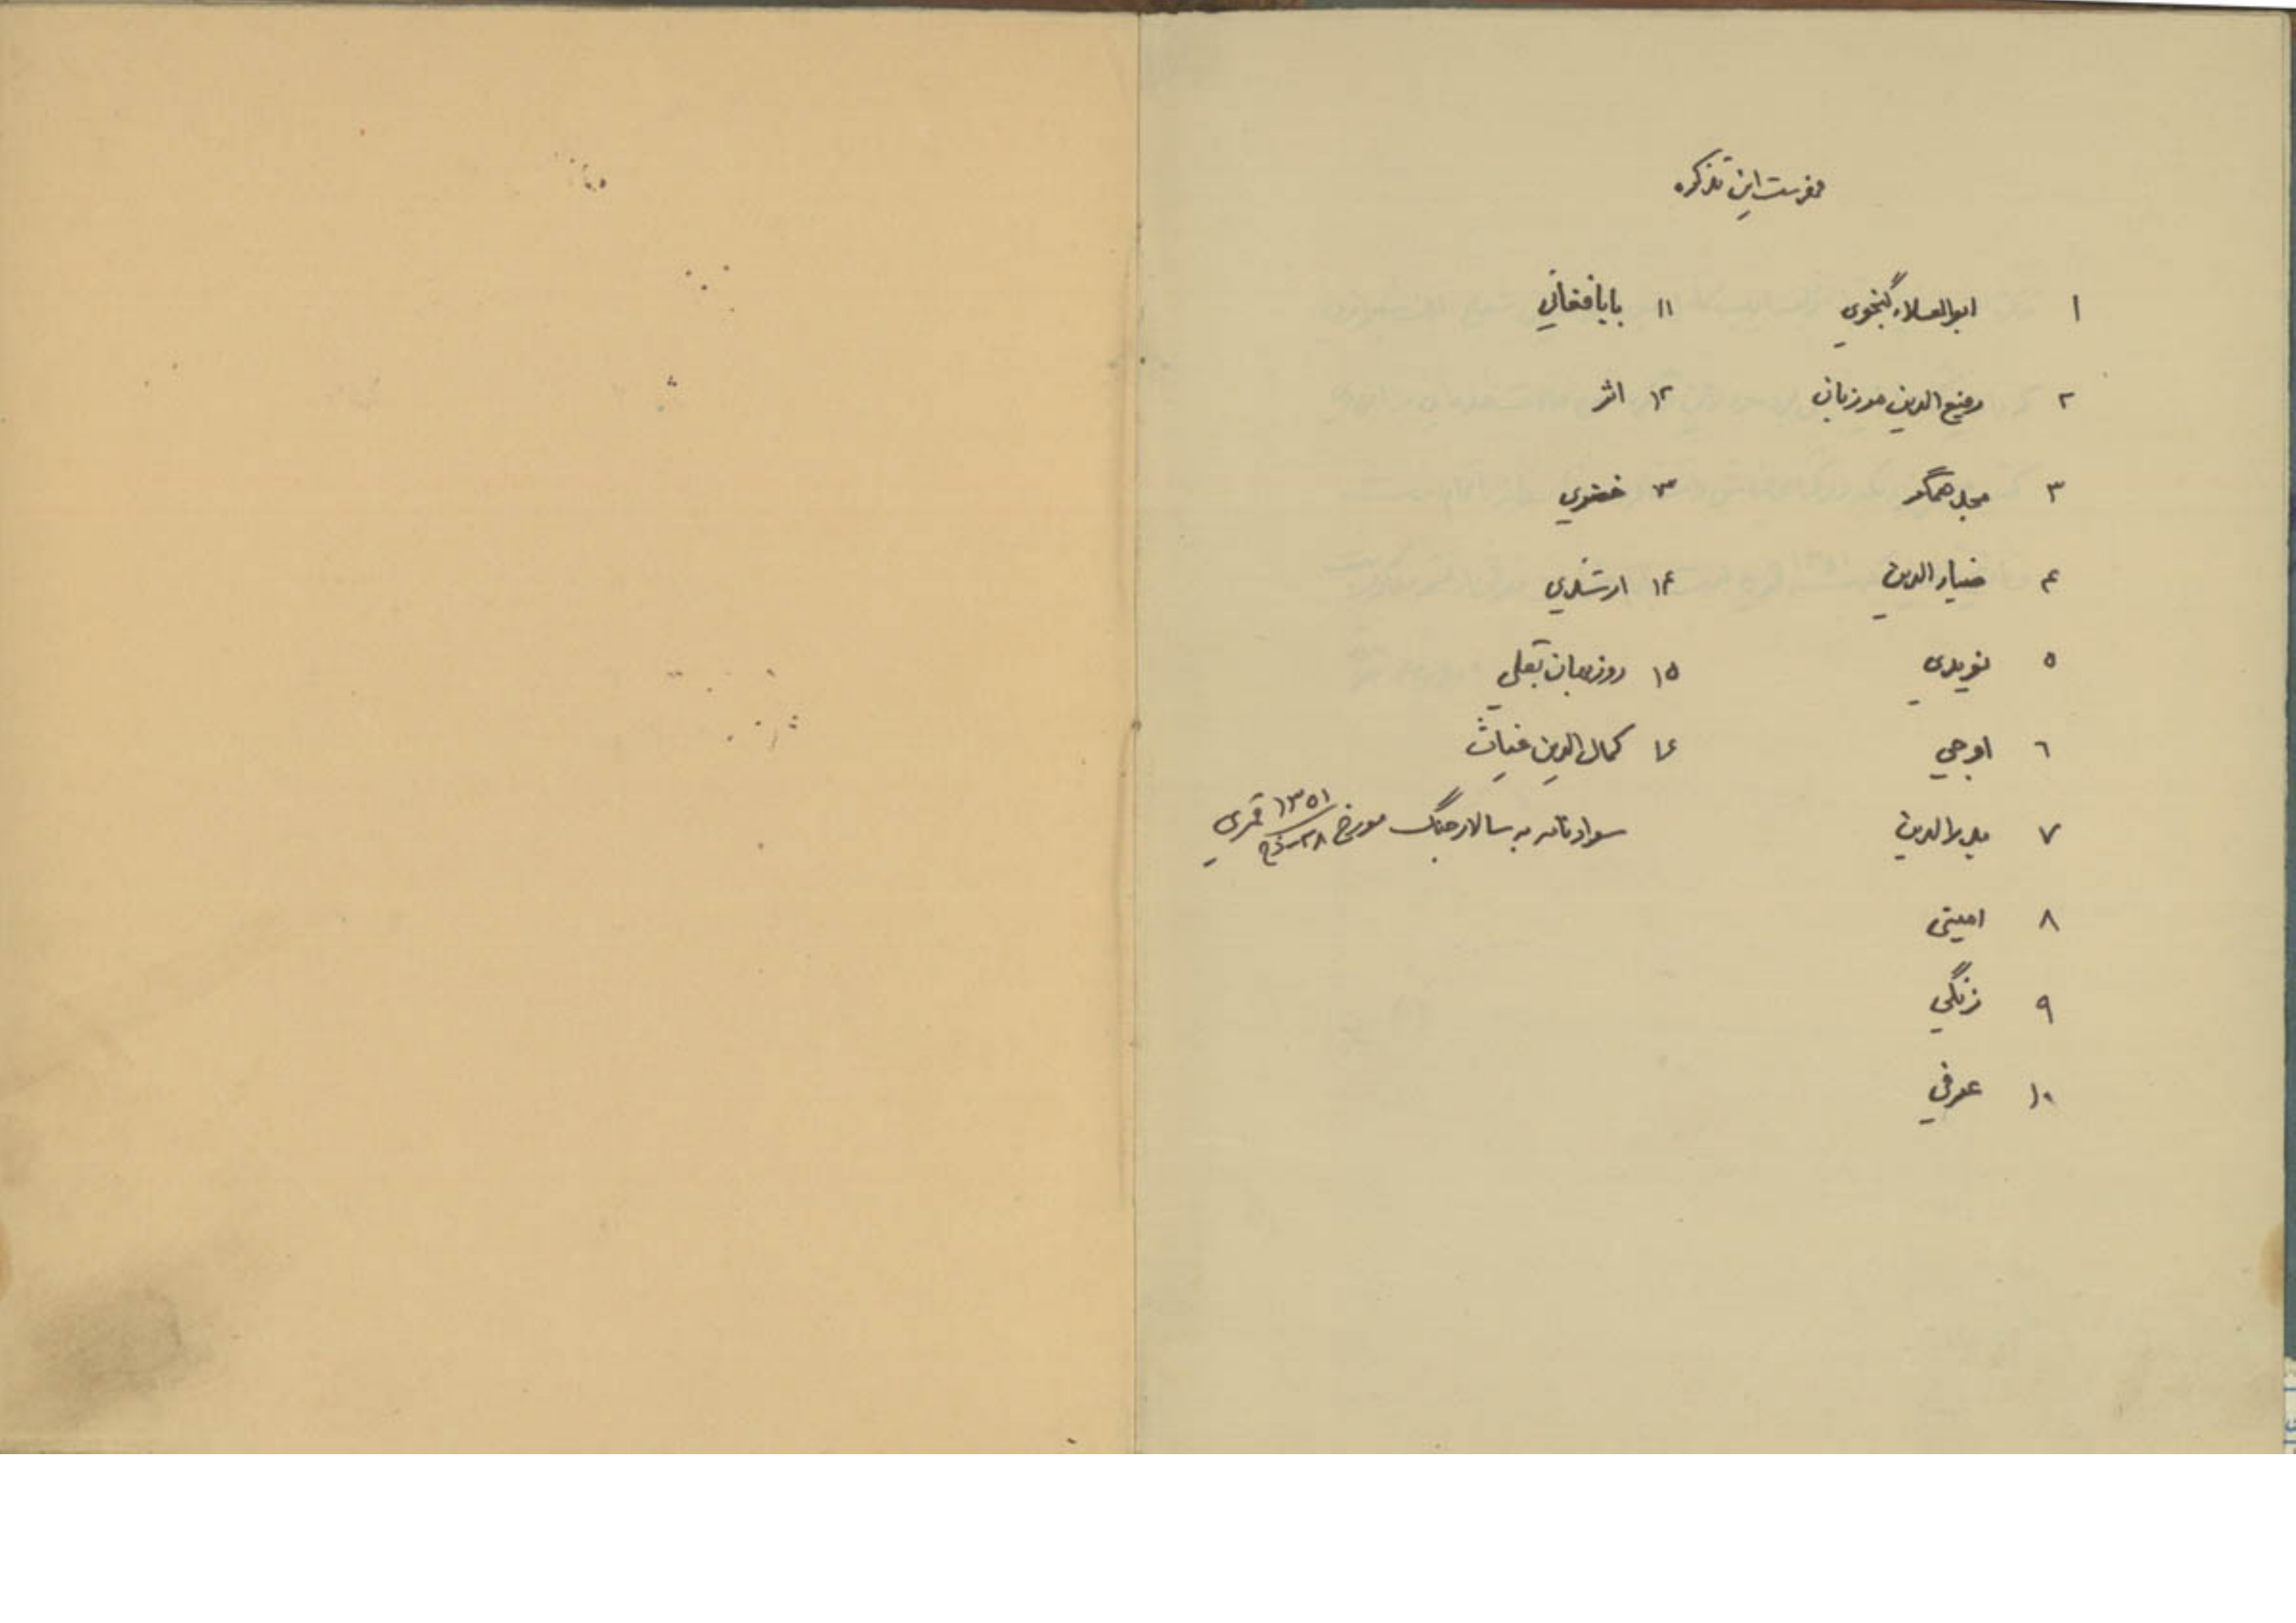 فهرست این تذکره
۱ ابوالعلاء گنجوی
۲ رفیع الدین مرزبان
۳ مجد همگر
۴ ضیاء الدین
۵ نویدی
۶ اوجی
۷ بدرالدین
۸ امینی
۹ زنگی
۱۰ عرفی
۱۱ بابافغانی
۱۲ اثر
۱۳ خضری
۱۴ ارشدی
۱۵ روزبهان بقلی
۱۶ کمال الدین غیاث
سواد نامه به سالار جنگ مورخ ۱۳۵۱ قمری